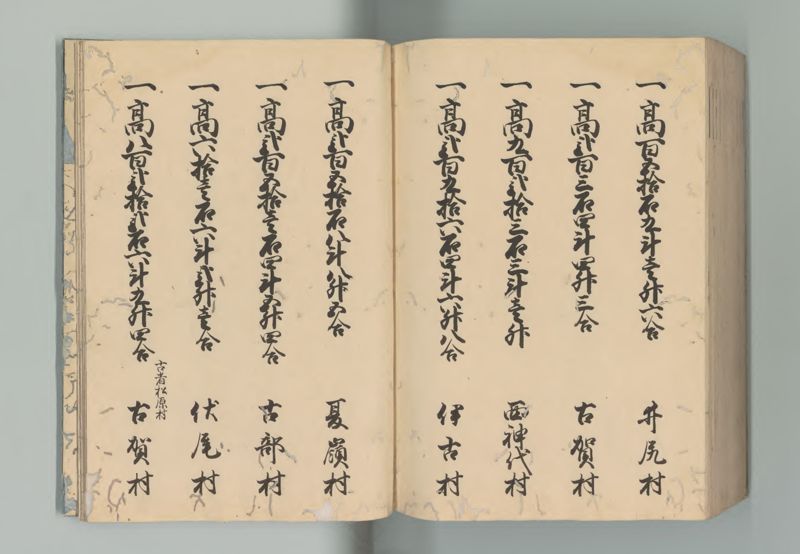 一高百五拾石九斗壱升六合 井尻村
一高弐百三石四斗四升三合 古賀村
一高九百弐拾三石三斗壱升 西神代村
一高弐百九拾六石四斗六升八合 伊古村
一高弐百五拾石八斗八升五合 夏嶺村
一高弐百五拾壱石四斗五升四合 古部村
一高六拾壱石六斗弐升壱合 伏尾村
一高八百弐拾弐石六斗九升四合 古賀村
古者松原村